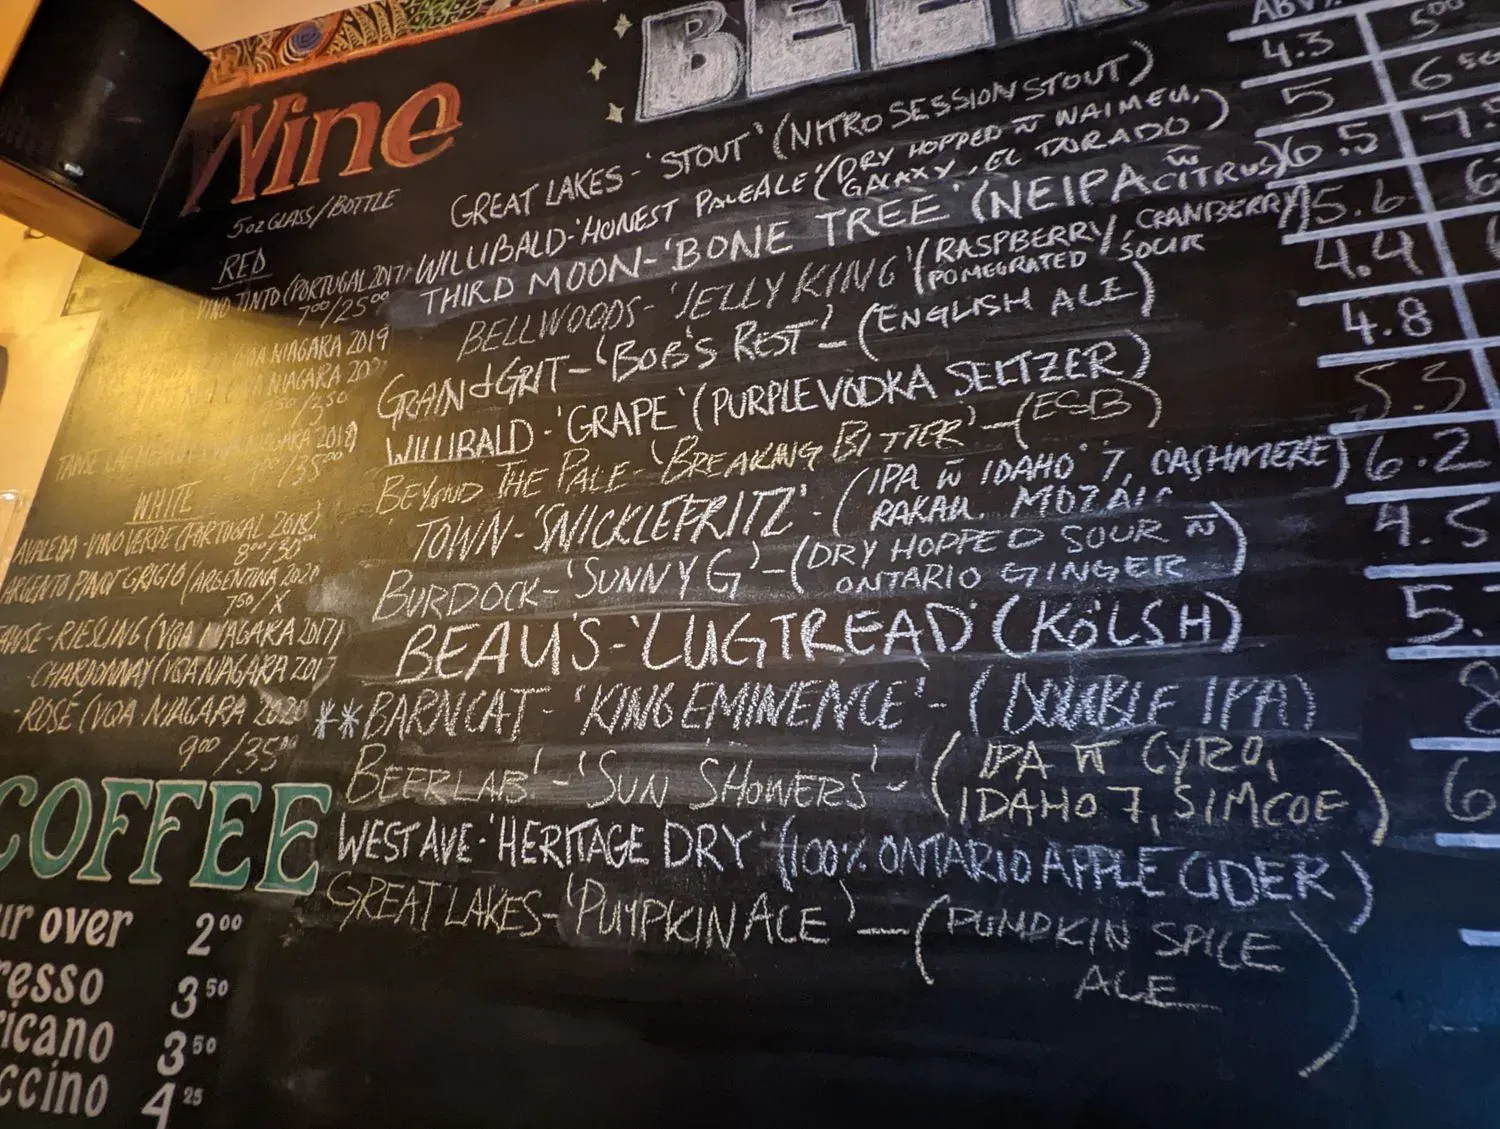 Wine
5oz GLASS/BOTTLE
RED
VINO TINTO (PORTUGAL 2017)
7⁰⁰/25⁰⁰
VQA NIAGARA 2019
NIAGARA
9⁵⁰/
NIAGARA 2018)
/35⁰⁰
WHITE
AVALEDA - VINO VERDE (PORTUGAL 2018)
8⁰⁰/30⁰⁰
ARGENTO PINOT GRIGIO (ARGENTINA 2020
7⁵⁰/X
-RIESLING (VQA NIAGARA 2017)
-CHARDONNAY (VQA NIAGARA 2017
-ROSÉ (VQA NIAGARA 2020
9⁰⁰/35⁰⁰
COFFEE
ur over 2⁰⁰
resso 3⁵⁰
ricano 3⁵⁰
ccino 4²⁵
BEER
ABV%
GREAT LAKES - 'STOUT' (NITRO SESSION STOUT) 4.3 5⁰⁰
WILLIBALD - 'HONEST PALE ALE' (DRY HOPPED w̄ WAIMEA, 5 6⁵⁰
GALAXY, EL DORADO)
THIRD MOON - 'BONE TREE' (NEIPA w̄ CITRUS) 6.5 7.5
BELLWOODS - 'JELLY KING' (RASPBERRY/CRANBERRY/ 5.6 6
POMEGRATED SOUR
GRAND GRIT - 'BOB'S REST' - (ENGLISH ALE) 4.4
WILLIBALD - 'GRAPE' (PURPLE VODKA SELTZER) 4.8
BEYOND THE PALE - 'BREAKING BITTER' - (ESB) 5.5
TOWN - 'SNICKLEFRITZ' - (IPA w̄ IDAHO 7, CASHMERE) 6.2
RAKAU, MOZAIC
BURDOCK - 'SUNNY G' - (DRY HOPPED SOUR w̄ 4.5
ONTARIO GINGER)
BEAU'S - 'LUGTREAD' (KÖLSH) 5.
**BARNCAT - 'KING EMINENCE' - (DOUBLE IPA) 8
BEERLAB! - 'SUN SHOWERS' - (IPA w̄ CYRO, 6
IDAHO 7, SIMCOE)
WEST AVE - 'HERITAGE DRY' (100% ONTARIO APPLE CIDER)
GREAT LAKES - 'PUMPKIN ALE' - (PUMPKIN SPICE
ALE)